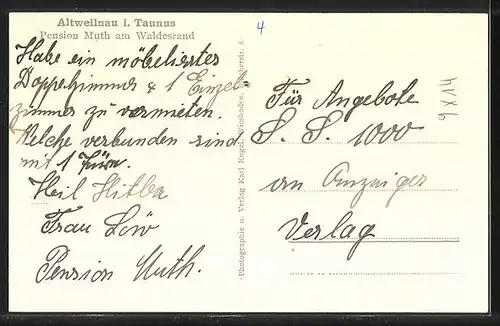 Altweilnau i. Taunus
Pension Muth am Waldesrand
4
Habe ein möbeliertes
Doppelzimmer & 1 Einzel-
zimmer zu vermieten.
Welche verbunden sind
mit 1 Türe.
Heil Hitler
Frau Löw
Pension Muth.
Photographie u. Verlag Karl Hegel, Wiesbaden,
Für Angebote
S. S. 1000
an Anzeiger
Verlag